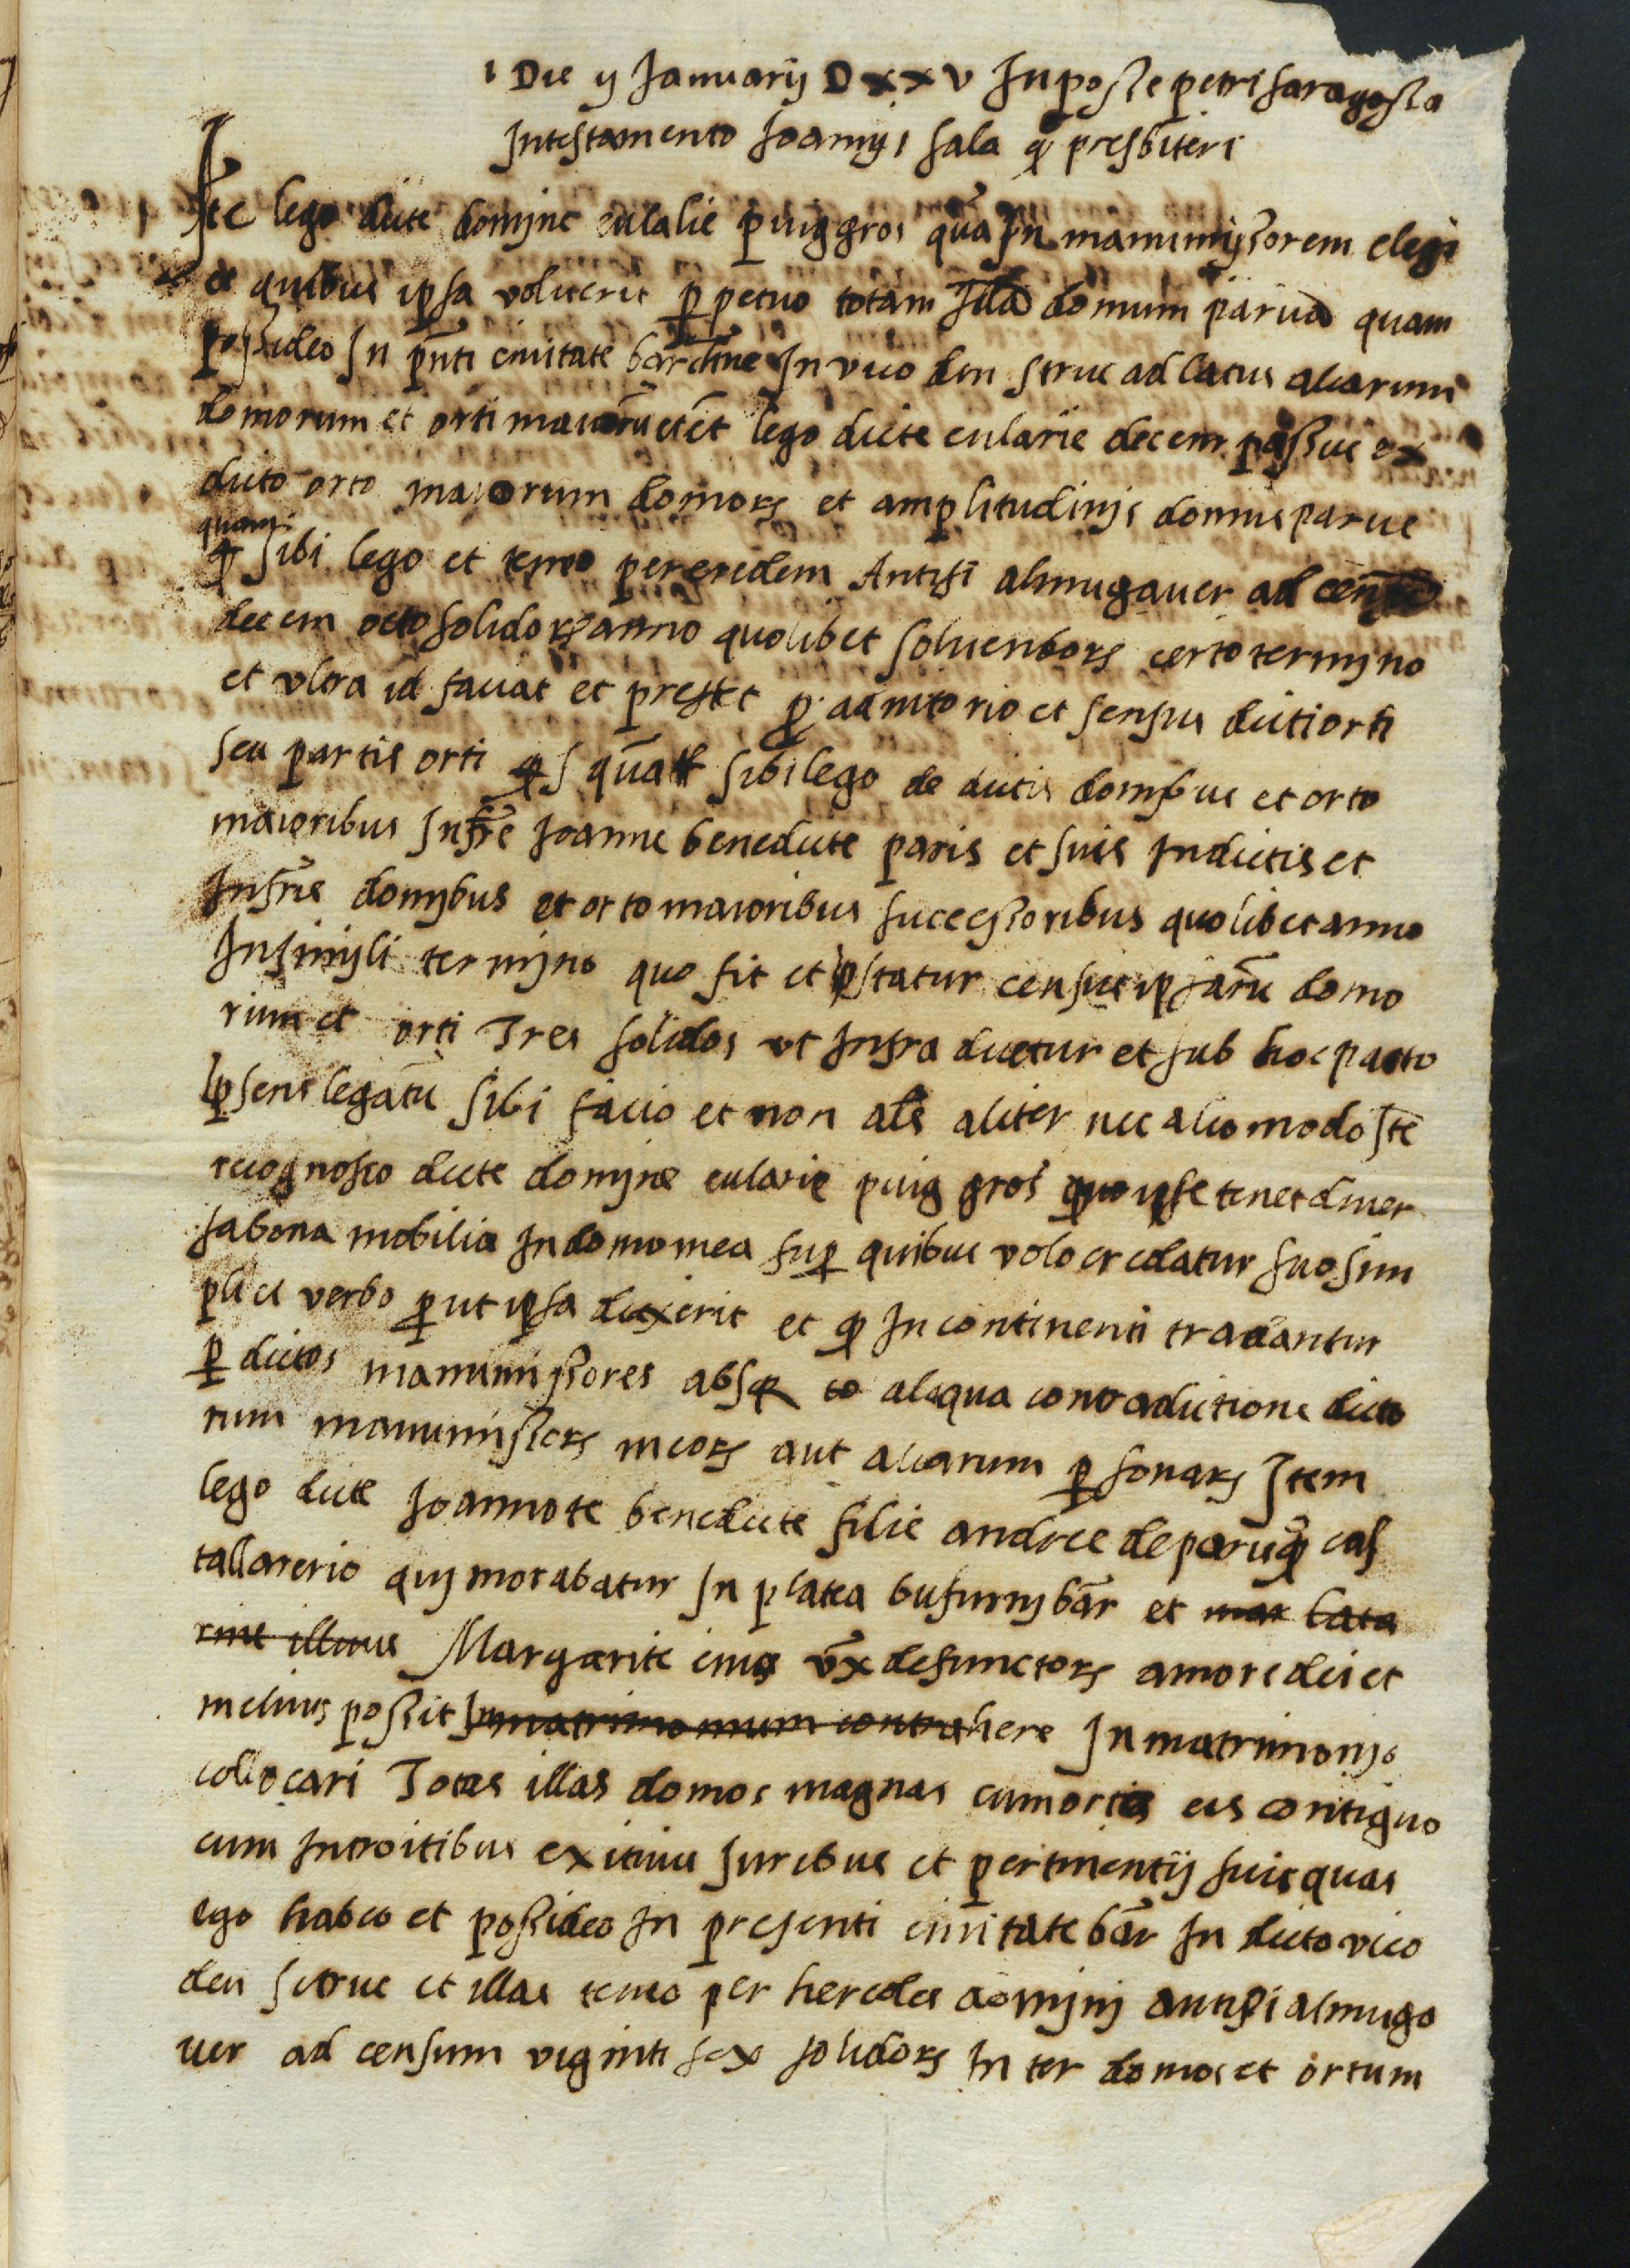 Die ij Januarij D xx v In posse petri saragossa
In testamento Joannis sala q° presbiteri
Ite lego dicte domine eulalie puiggros quā In manumissorem elegi
et quibus ipsa voluerit perpetuo totam Illā domum parvā quam
possideo In pnti civitate barchne In vico den struc ad latus aliarum
domorum et orti maiorū et et lego dicte eularie decem passus ex
dicto orto maiorum domors et amplitudinis domus parve
quam
sibi lego et teneo per eredem Antisi almugaver ad
decem octo solidors anno quolibet solvendors certo termino
et ultra id faciat et prestet per adiutorio et sensus dicti orti
seu partis orti quā sibi lego de dictis domibus et orto
maioribus Infre Joanne benedicte paris et suis In dictis et
Infris domybus et orto maioribus sucessoribus quolibet anno
In simyli termyno quo fit et pstatur census ipsarū domo
rum et orti Tres solidos ut Infra dicetur et sub hoc pacto
psens legatū sibi facio et non als aliter nec alio modo Ite
recognosco dicte domine eularie puig gros quo ipse tenet diver
sa bona mobilia In domo mea sup quibus volo credatur suo sim
plici verbo put ipsa dixerit et q In continenti tradantur
p dictos manumissores absq aliqua contradictione dicto
rum manumissors meors aut aliarum psonars Item
lego dicte Joannote benedicte filie andree de paris q° cas
tallarerio qui morabatur In platea bufurny bār et mar Cata
rine illius Margarite eius vx defunctors amore dei et
melius possit In matrimonium contrahere In matrimonio
collocari Totes illas domos magnas cum orto eis contiguo
cum Introitibus exitius Juribus et pertinentijs suis quas
ego habeo et possideo In presenti civitate bār In dicto vico
den struc et illas teneo per heredes domini antisi almuga
ver ad censum viginti sex solidors Inter domos et ortum